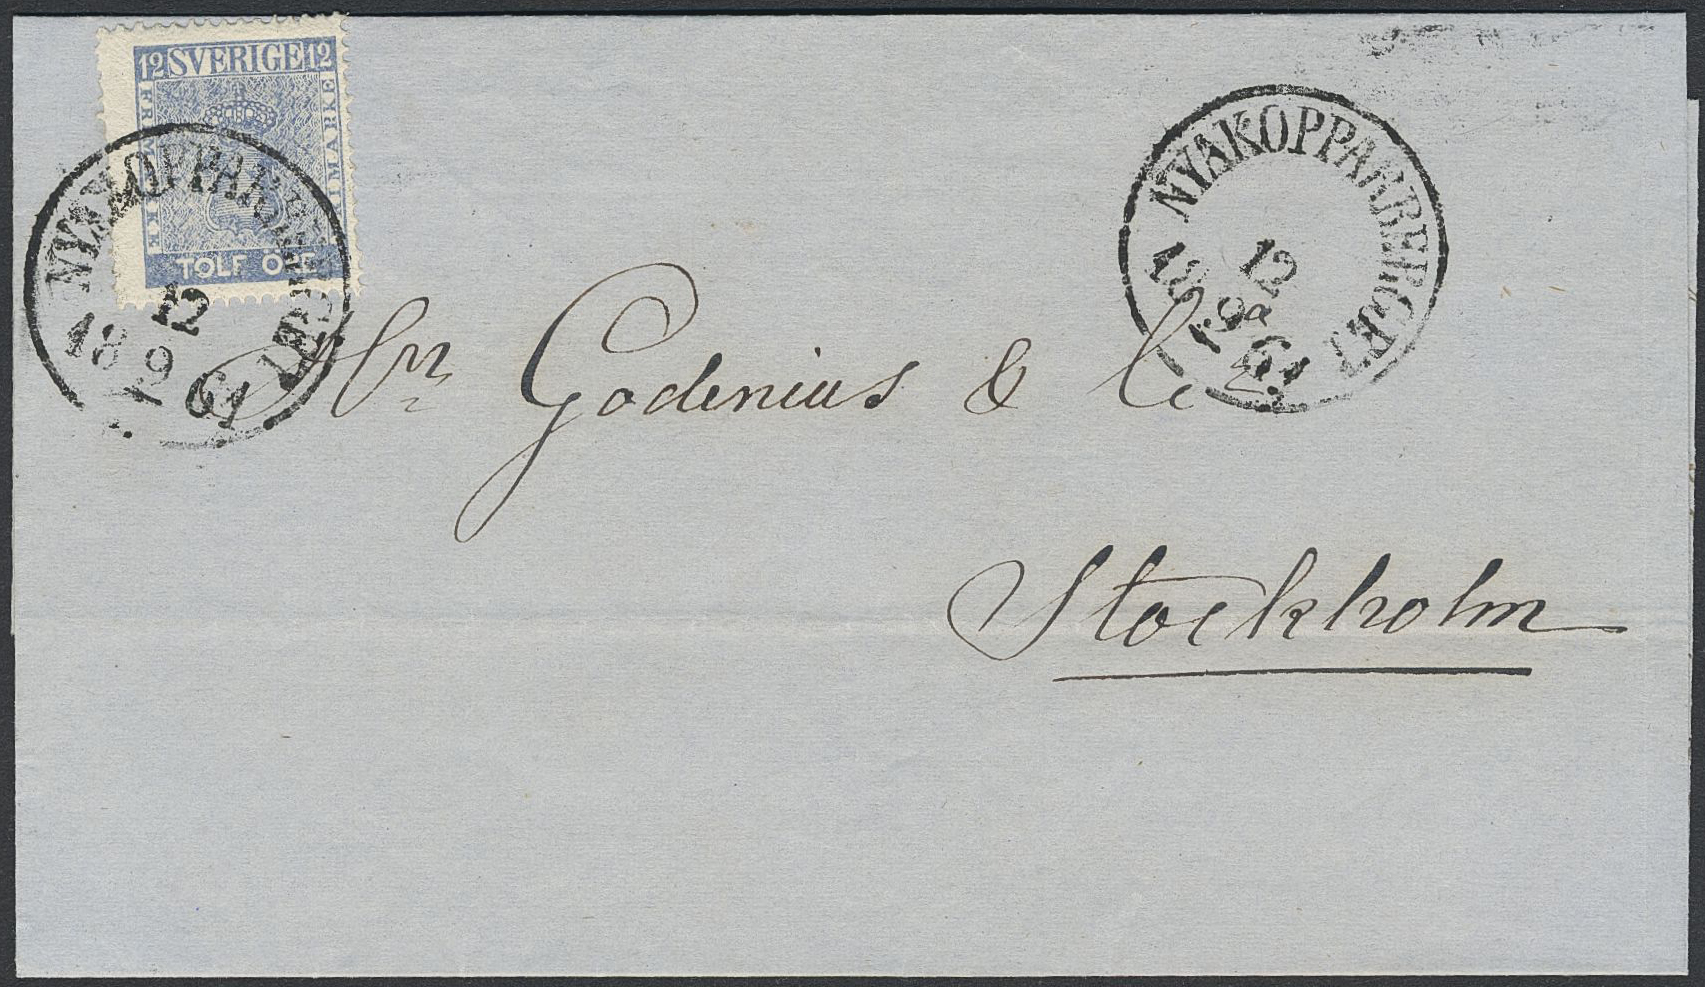 12 SVERIGE 12
FRIMARKE
FRIMARKE
TOLF ÖRE
NYAKOPPARBERGET
12
9
18 61
NYAKOPPARBERGET
12
9
18 61
Hrr Godenius & Co
Stockholm